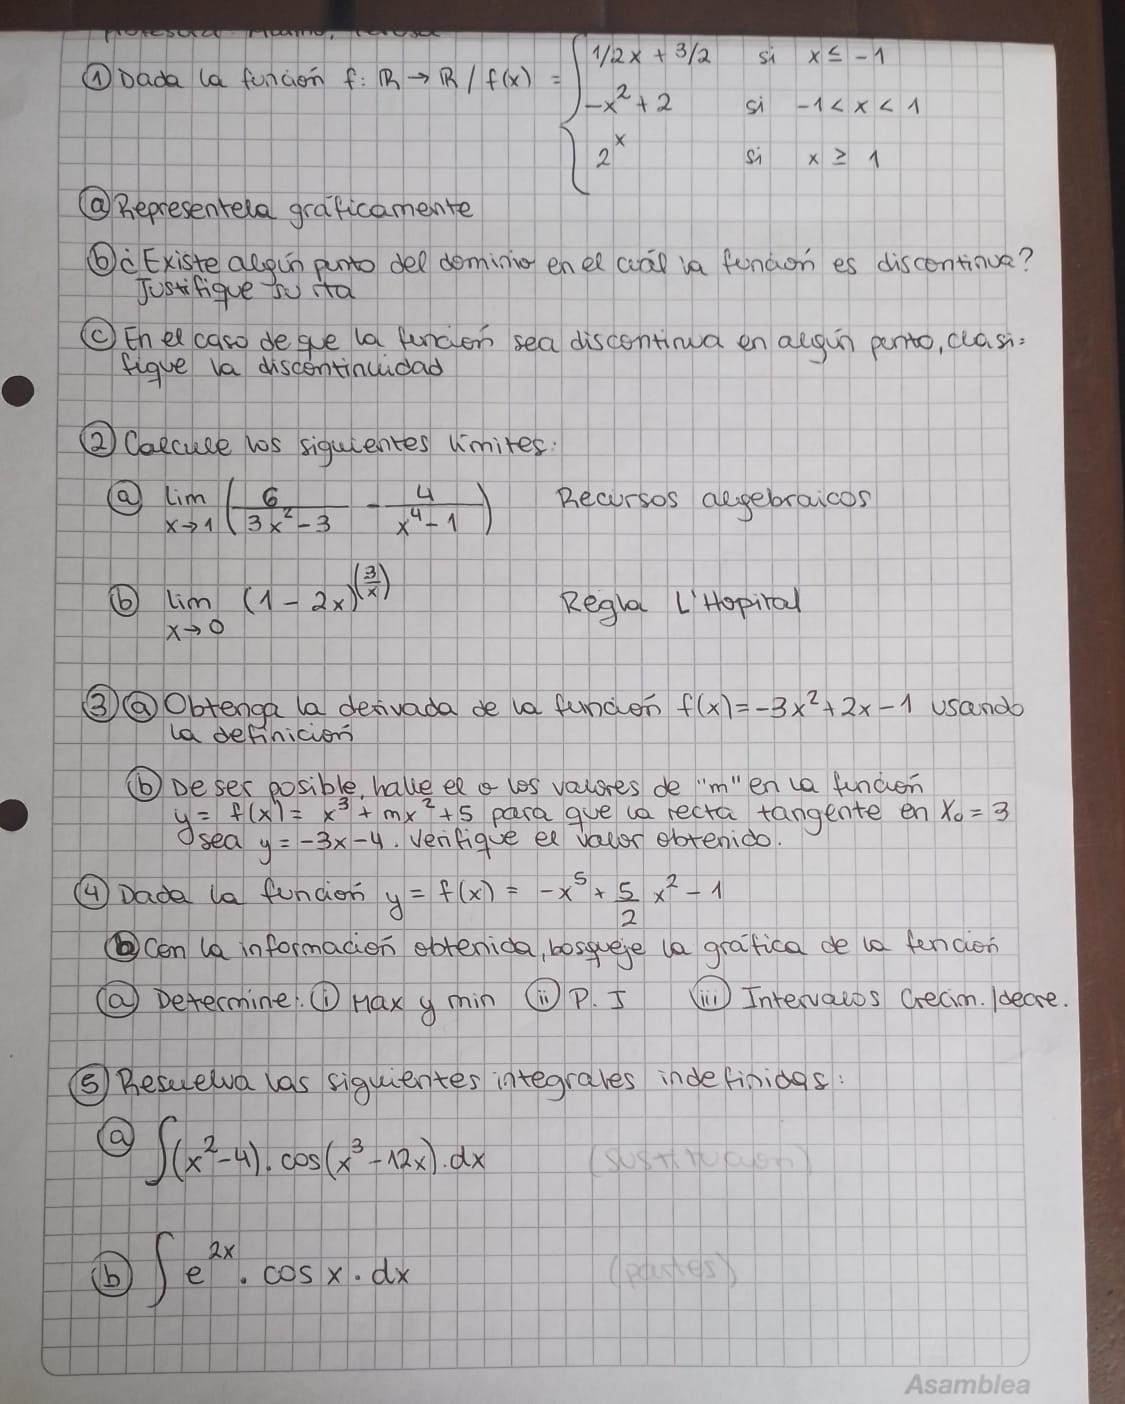 ① Dada la función f: ℝ → ℝ / f(x) = { 1/2x + 3/2 si x ≤ -1
-x² + 2 si -1 < x < 1
2^x si x ≥ 1
ⓐ Representela gráficamente
ⓑ ¿Existe algún punto del dominio en el cuál la función es discontinua?
Justifique su rta
ⓒ En el caso de que la función sea discontinua en algún punto, clasi=
fique la discontinuidad
② Calcule los siguientes límites:
ⓐ lim x→1 (6/(3x²-3) - 4/(x⁴-1)) Recursos algebraicos
ⓑ lim x→0 (1-2x)^(3/x) Regla L'Hopital
③ ⓐ Obtenga la derivada de la función f(x)=-3x²+2x-1 usando
la definición
ⓑ De ser posible, halle el o los valores de "m" en la función
y= f(x)= x³+mx²+5 para que la recta tangente en X₀=3
sea y=-3x-4. Verifique el valor obtenido.
④ Dada la función y= f(x) = -x⁵ + 5/2 x² - 1
ⓑ Con la información obtenida, bosqueje la gráfica de la función
ⓐ Determine: ⓘ Max y min ⓘⓘ P. I ⓘⓘⓘ Intervalos Crecim./decre.
⑤ Resuelva las siguientes integrales indefinidas:
ⓐ ∫(x²-4).cos(x³-12x).dx (sustitución)
ⓑ ∫e^2x . cos x . dx (partes)
Asamblea